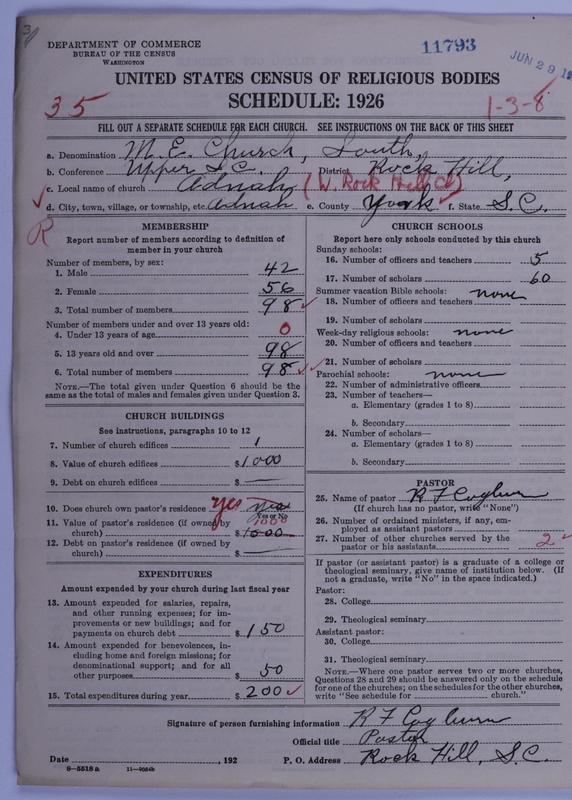 3
DEPARTMENT OF COMMERCE
BUREAU OF THE CENSUS
WASHINGTON
11793
JUN 29 19
UNITED STATES CENSUS OF RELIGIOUS BODIES
SCHEDULE: 1926
35
1-3-8
FILL OUT A SEPARATE SCHEDULE FOR EACH CHURCH. SEE INSTRUCTIONS ON THE BACK OF THIS SHEET
a. Denomination M. E. Church, South,
b. Conference Upper S.C. District Rock Hill,
c. Local name of church Adnah (W. Rock Hill Ct)
d. City, town, village, or township, etc. Adnah e. County York f. State S.C.
R
MEMBERSHIP
Report number of members according to definition of
member in your church
Number of members, by sex:
1. Male 42
2. Female 56
3. Total number of members 98
Number of members under and over 13 years old:
4. Under 13 years of age 0
5. 13 years old and over 98
6. Total number of members 98
NOTE.—The total given under Question 6 should be the
same as the total of males and females given under Question 3.
CHURCH BUILDINGS
See instructions, paragraphs 10 to 12
7. Number of church edifices 1
8. Value of church edifices $1000
9. Debt on church edifices $
10. Does church own pastor's residence yes yes
Yes or No
11. Value of pastor's residence (if owned by
church) $1000 1000
12. Debt on pastor's residence (if owned by
church) $
EXPENDITURES
Amount expended by your church during last fiscal year
13. Amount expended for salaries, repairs,
and other running expenses; for im-
provements or new buildings; and for
payments on church debt $150
14. Amount expended for benevolences, in-
cluding home and foreign missions; for
denominational support; and for all
other purposes $50
15. Total expenditures during year $200
CHURCH SCHOOLS
Report here only schools conducted by this church
Sunday schools:
16. Number of officers and teachers 5
17. Number of scholars 60
Summer vacation Bible schools: none
18. Number of officers and teachers
19. Number of scholars
Week-day religious schools: none
20. Number of officers and teachers
21. Number of scholars
Parochial schools: none
22. Number of administrative officers
23. Number of teachers—
a. Elementary (grades 1 to 8)
b. Secondary
24. Number of scholars—
a. Elementary (grades 1 to 8)
b. Secondary
PASTOR
25. Name of pastor R F Cogburn
(If church has no pastor, write "None")
26. Number of ordained ministers, if any, em-
ployed as assistant pastors
27. Number of other churches served by the
pastor or his assistants 2
If pastor (or assistant pastor) is a graduate of a college or
theological seminary, give name of institution below. (If
not a graduate, write "No" in the space indicated.)
Pastor:
28. College
29. Theological seminary
Assistant pastor:
30. College
31. Theological seminary
NOTE.—Where one pastor serves two or more churches,
Questions 28 and 29 should be answered only on the schedule
for one of the churches; on the schedules for the other churches,
write "See schedule for church."
Signature of person furnishing information R F Cogburn
Official title Pastor
Date , 192 P. O. Address Rock Hill, S.C.
8-5518a